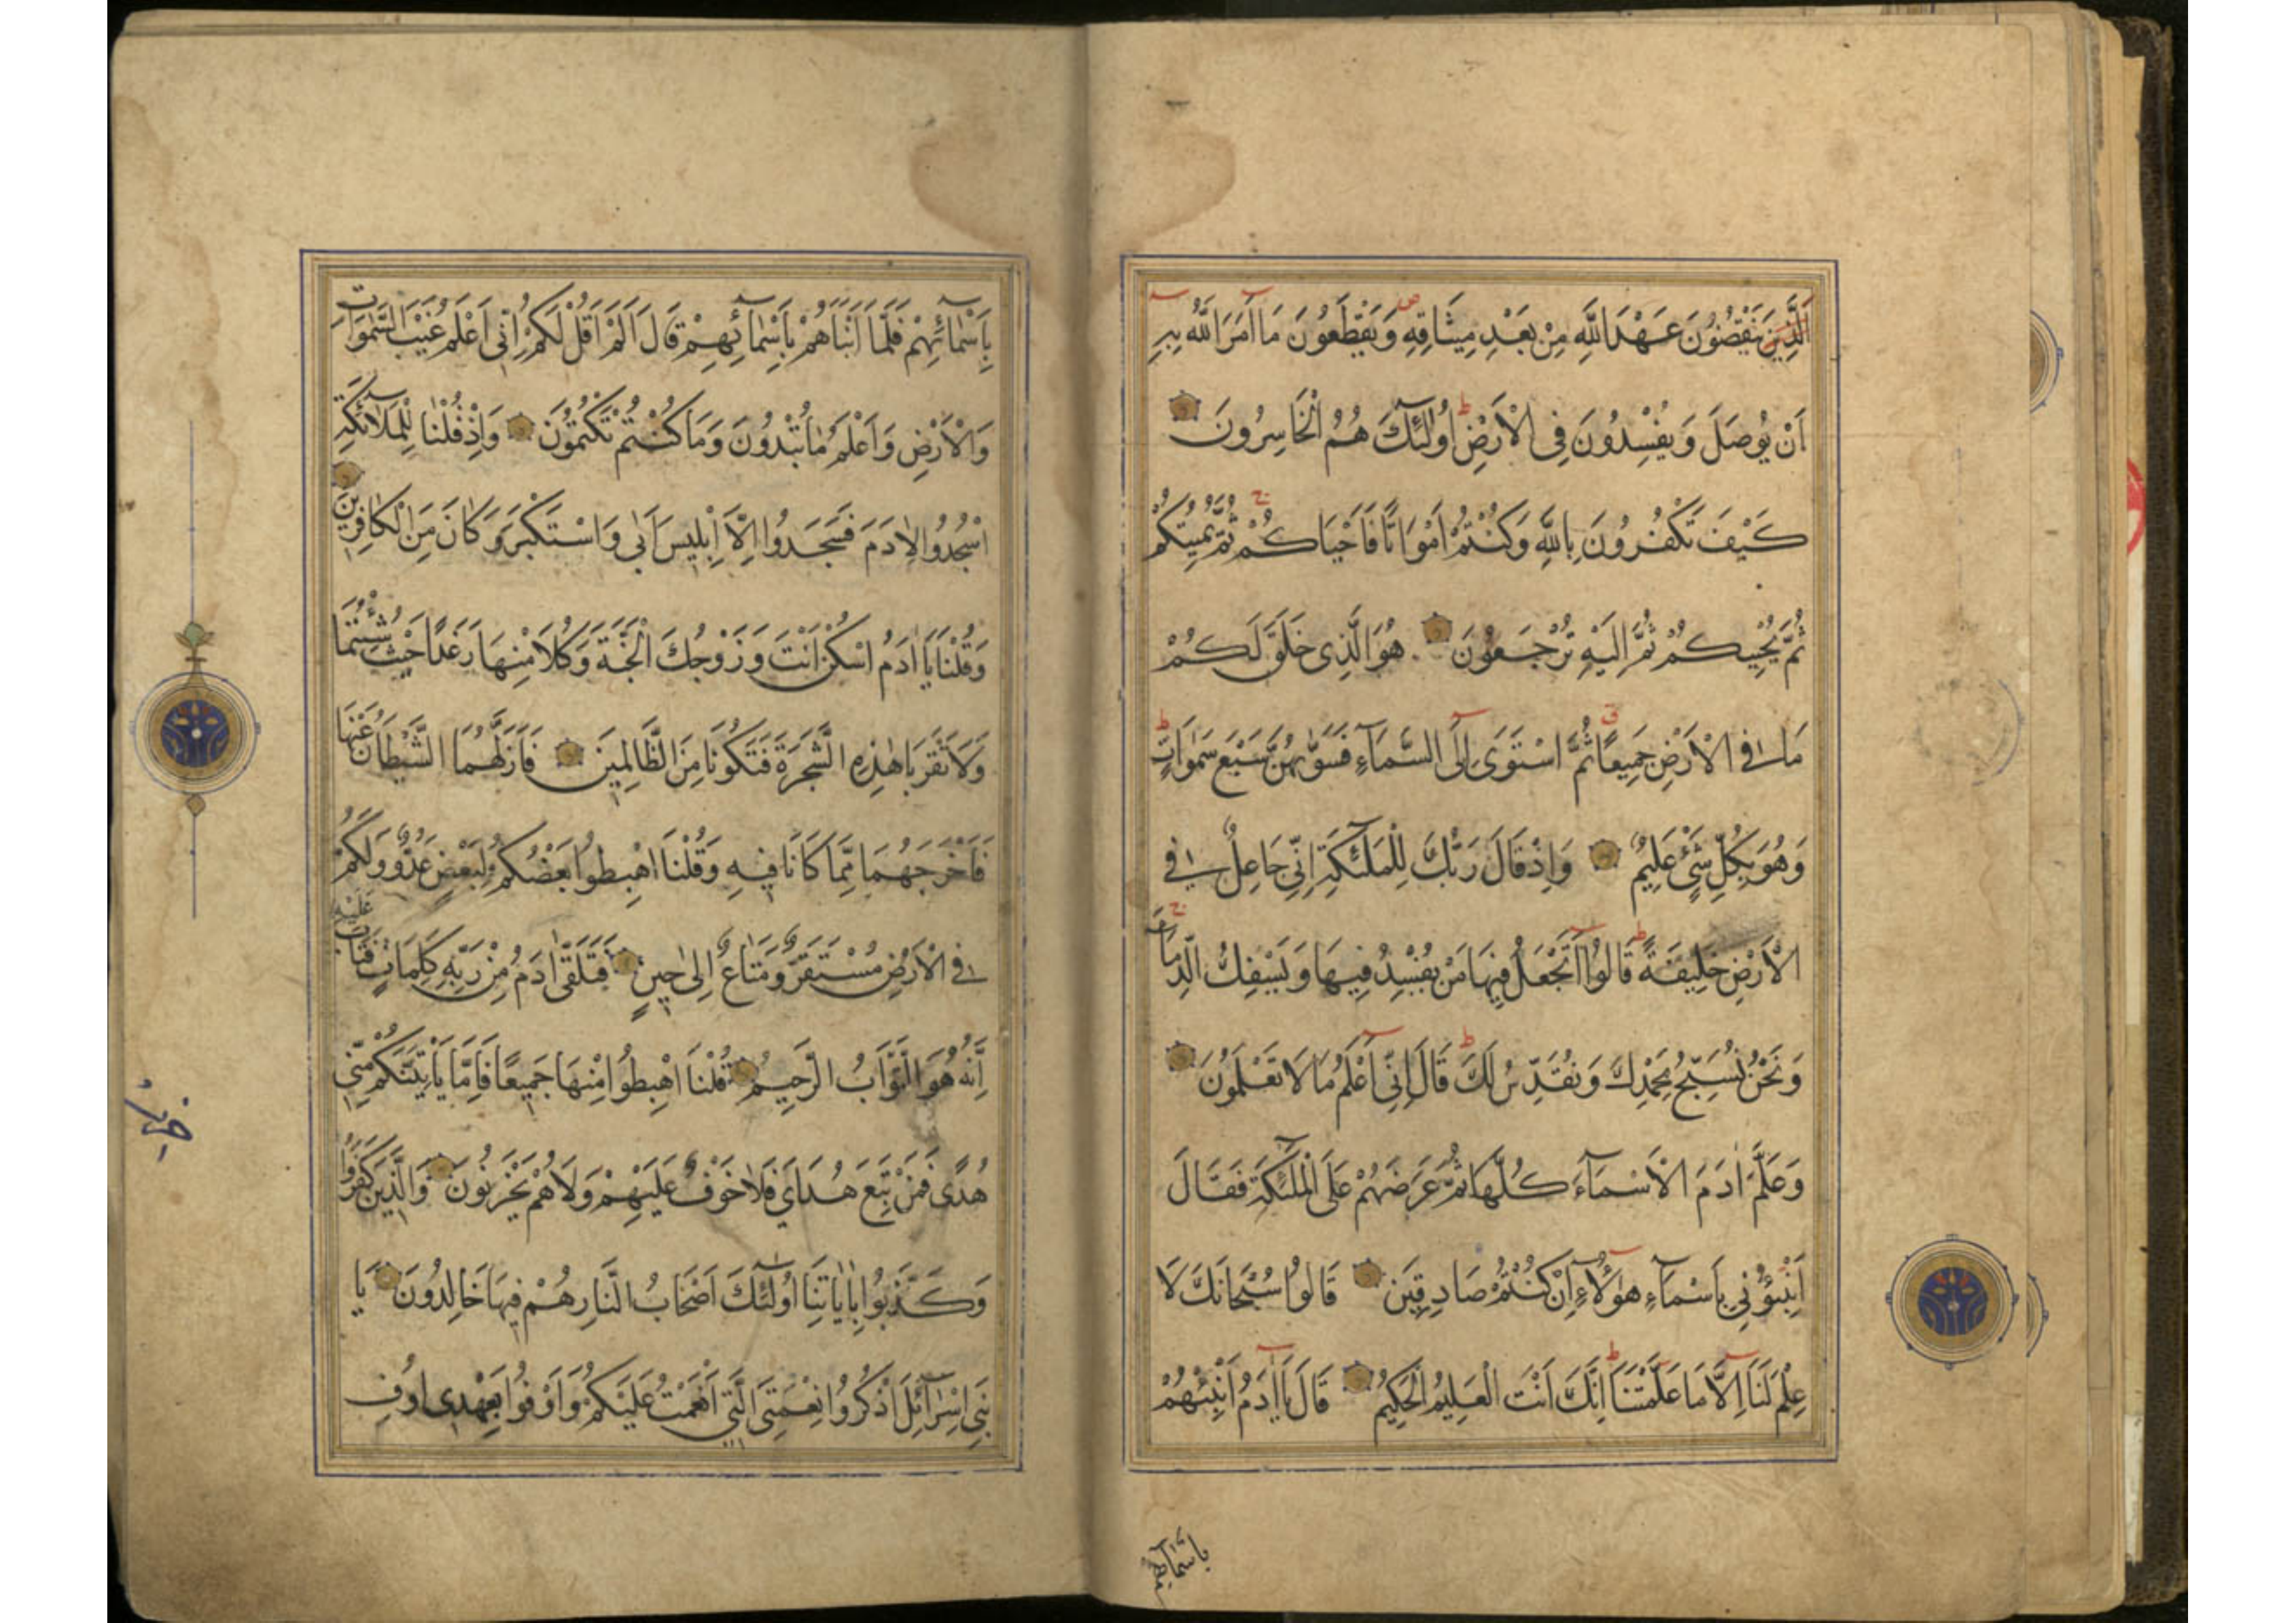 اَلَّذِينَ يَنْقُضُونَ عَهْدَ اللَّهِ مِنْ بَعْدِ مِيثَاقِهِ وَيَقْطَعُونَ مَا اَمَرَ اللَّهُ بِهِ
اَنْ يُوصَلَ وَيُفْسِدُونَ فِى الْاَرْضِ اُولٰئِكَ هُمُ الْخَاسِرُونَ
كَيْفَ تَكْفُرُونَ بِاللَّهِ وَكُنْتُمْ اَمْوَاتًا فَاَحْيَاكُمْ ثُمَّ يُمِيتُكُمْ
ثُمَّ يُحْيِيكُمْ ثُمَّ اِلَيْهِ تُرْجَعُونَ هُوَ الَّذِى خَلَقَ لَكُمْ
مَا فِى الْاَرْضِ جَمِيعًا ثُمَّ اسْتَوَى اِلَى السَّمَآءِ فَسَوّٰيهُنَّ سَبْعَ سَمٰوَاتٍ
وَهُوَ بِكُلِّ شَىْءٍ عَلِيمٌ وَاِذْ قَالَ رَبُّكَ لِلْمَلٰٓئِكَةِ اِنِّى جَاعِلٌ فِى
الْاَرْضِ خَلِيفَةً قَالُوا اَتَجْعَلُ فِيهَا مَنْ يُفْسِدُ فِيهَا وَيَسْفِكُ الدِّمَآءَ
وَنَحْنُ نُسَبِّحُ بِحَمْدِكَ وَنُقَدِّسُ لَكَ قَالَ اِنِّى اَعْلَمُ مَا لَا تَعْلَمُونَ
وَعَلَّمَ اٰدَمَ الْاَسْمَآءَ كُلَّهَا ثُمَّ عَرَضَهُمْ عَلَى الْمَلٰٓئِكَةِ فَقَالَ
اَنْبِئُونِى بِاَسْمَآءِ هٰٓؤُلَآءِ اِنْ كُنْتُمْ صَادِقِينَ قَالُوا سُبْحَانَكَ لَا
عِلْمَ لَنَا اِلَّا مَا عَلَّمْتَنَا اِنَّكَ اَنْتَ الْعَلِيمُ الْحَكِيمُ قَالَ يَا اٰدَمُ اَنْبِئْهُمْ
باسمائهم
بِاَسْمَآئِهِمْ فَلَمَّا اَنْبَاَهُمْ بِاَسْمَآئِهِمْ قَالَ اَلَمْ اَقُلْ لَكُمْ اِنِّى اَعْلَمُ غَيْبَ السَّمٰوَاتِ
وَالْاَرْضِ وَاَعْلَمُ مَا تُبْدُونَ وَمَا كُنْتُمْ تَكْتُمُونَ وَاِذْ قُلْنَا لِلْمَلَآئِكَةِ
اسْجُدُوا لِاٰدَمَ فَسَجَدُوا اِلَّا اِبْلِيسَ اَبٰى وَاسْتَكْبَرَ وَكَانَ مِنَ الْكَافِرِينَ
وَقُلْنَا يَا اٰدَمُ اسْكُنْ اَنْتَ وَزَوْجُكَ الْجَنَّةَ وَكُلَا مِنْهَا رَغَدًا حَيْثُ شِئْتُمَا
وَلَا تَقْرَبَا هٰذِهِ الشَّجَرَةَ فَتَكُونَا مِنَ الظَّالِمِينَ فَاَزَلَّهُمَا الشَّيْطَانُ عَنْهَا
فَاَخْرَجَهُمَا مِمَّا كَانَا فِيهِ وَقُلْنَا اهْبِطُوا بَعْضُكُمْ لِبَعْضٍ عَدُوٌّ وَلَكُمْ
فِى الْاَرْضِ مُسْتَقَرٌّ وَمَتَاعٌ اِلٰى حِينٍ فَتَلَقّٰى اٰدَمُ مِنْ رَبِّهِ كَلِمَاتٍ فَتَابَ عَلَيْهِ
اِنَّهُ هُوَ التَّوَّابُ الرَّحِيمُ قُلْنَا اهْبِطُوا مِنْهَا جَمِيعًا فَاِمَّا يَاْتِيَنَّكُمْ مِنِّى
هُدًى فَمَنْ تَبِعَ هُدَاىَ فَلَا خَوْفٌ عَلَيْهِمْ وَلَا هُمْ يَحْزَنُونَ وَالَّذِينَ كَفَرُوا
وَكَذَّبُوا بِاٰيَاتِنَا اُولٰٓئِكَ اَصْحَابُ النَّارِ هُمْ فِيهَا خَالِدُونَ يَا
بَنِى اِسْرَآئِلَ اذْكُرُوا نِعْمَتِىَ الَّتِى اَنْعَمْتُ عَلَيْكُمْ وَاَوْفُوا بِعَهْدِى اُوفِ